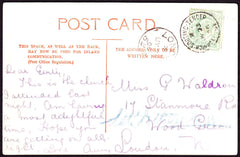 POST CARD
THIS SPACE, AS WELL AS THE BACK,
MAY NOW BE USED FOR INLAND
COMMUNICATION.
(Post Office Regulation).
THE ADDRESS ONLY TO BE
WRITTEN HERE.
Dear
This is the church
I attended
night. Am having
a most delightful
time. Hope you
are getting on all
right.
Miss P Waldron
17 Stanmore Road
Wood Green
London N